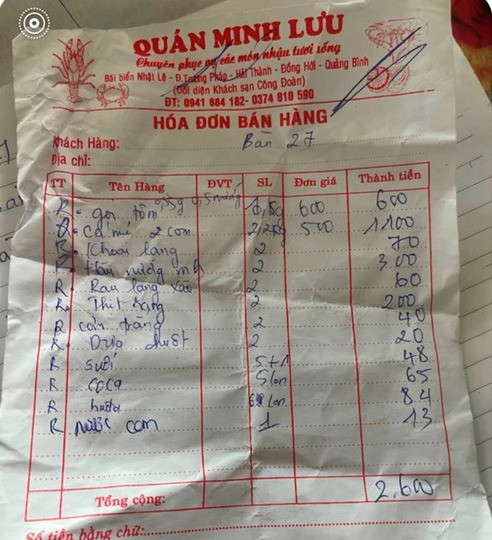 QUÁN MINH LƯU
Chuyên phục vụ các món nhậu tươi sống
Bãi biển Nhật Lệ - Đ.Trương Pháp - Hải Thành - Đồng Hới - Quảng Bình
(Đối diện Khách sạn Công Đoàn)
ĐT: 0941 684 182- 0374 810 590
HÓA ĐƠN BÁN HÀNG
Khách Hàng: Bàn 27
Địa chỉ:
TT Tên Hàng ĐVT SL Đơn giá Thành tiền
R gỏi tôm 600 600
R Cá mú 2 con 2,2kg 500 1100
R Khoai lang 2 70
R Hàu nướng mh 2 300
R Rau lang xào 2 60
R Thịt rang 2 200
R cơm trắng 2 40
R Dưa chuột 2 20
R suối 5+1 48
R coca 5 lon 65
R lon 84
R nước cam 1 13
Tổng cộng: 2,600
Số tiền bằng chữ: